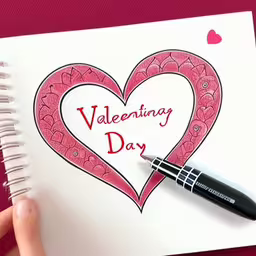 Valeentinag
Day